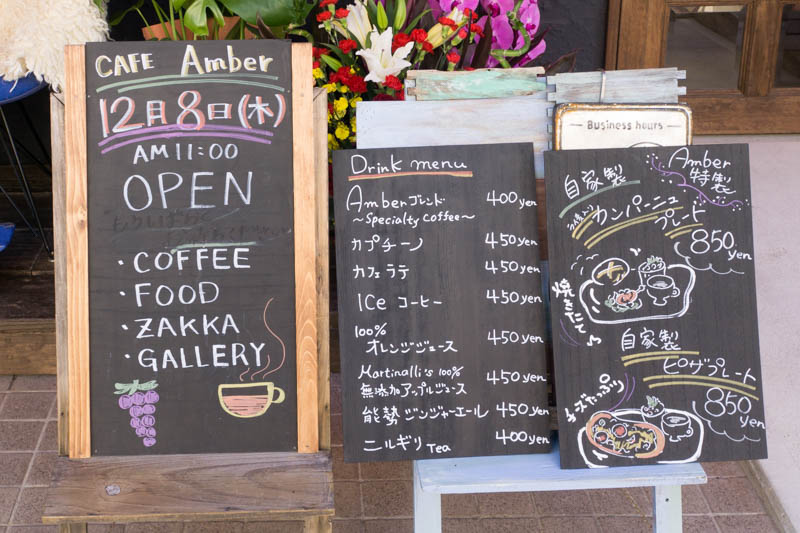 CAFE Amber
12月8日(木)
AM 11:00
OPEN
・COFFEE
・FOOD
・ZAKKA
・GALLERY
Drink menu
Amberブレンド 400yen
〜Specialty coffee〜
カプチーノ 450yen
カフェラテ 450yen
ICe コーヒー 450yen
100%
オレンジジュース 450yen
Martinalli's 100%
無添加アップルジュース 450yen
能勢 ジンジャーエール 450yen
ニルギリ Tea 400yen
Business hours
Amber
特製
自家製
カンパーニュ
プレート
850yen
焼きたて
自家製
ピザプレート
850yen
チーズたっぷり